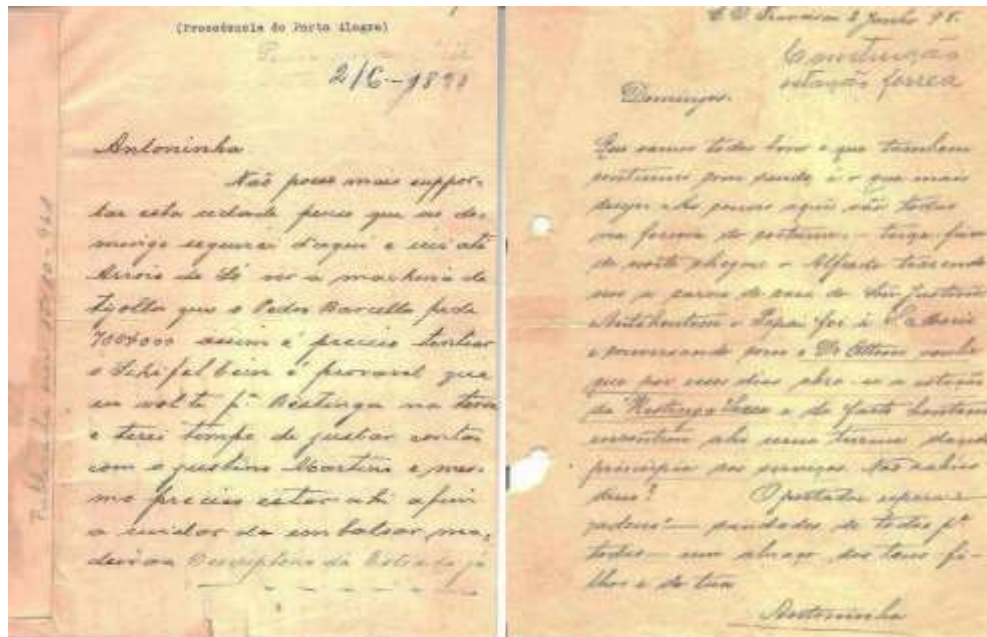 (Procedencia de Porto Alegre)
2/6-1898
Antoninha
Não posso mais suppor-
tar esta cidade penso que no do-
mingo seguirei d'aqui e irei até
Arroio do Só ver a machina de
tijollo que o Pedro Barcello pede
700$000 assim é preciso tentar
o Schifelbein é provavel que
eu volte pª Restinga na terça
e terei tempo de justar contas
com o Justino Martins e mes-
mo preciso estar ahi afim
a cuidar de embalsar ma-
deiras
da Estrada já
S. Francisco 2 Junho 98.
Construção
estação ferrea
Domingos.
Que vamos todos bons e que tambem
continuem com saude, é o que mais
desejo. As cousas aqui vão todas
na forma do costume. — terça feira
de noite chegou o Alfredo trazendo
nos a carne de casa do
Antehontem o Papai foi á
e conversando com o Dr
que por esses dias abre-se a estação
da Restinga Secca e de facto hontem
encontrou ahi uma turma dando
principio aos serviços. Não sabias
disso? O portador espera e
adeus — saudades de todos pª
todos — um abraço dos teus fi-
lhos e da tua
Antoninha